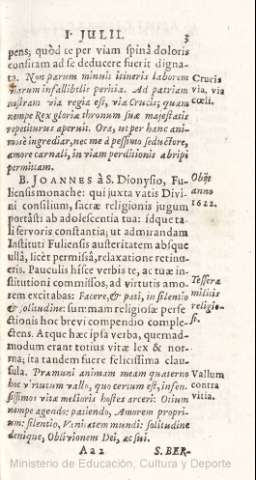 I. JULII. 3
pens; quòd te per viam spinâ doloris
consitam ad se deducere fuerit digna-
ta. Non parum minuit itineris laborem
viarum infallibilis peritia. Ad patriam
nostram via regia est, via Crucis; quam
nempe Rex gloriæ thronum suæ majestatis
repetiturus aperuit. Ora, ut per hanc ani-
mosè ingrediar, nec me à pessimo seductore,
amore carnali, in viam perditionis abripi
permittam.
Crucis
via, via
cœli.
B. JOANNES à S. Dionysio, Fu-
liensis monache: qui juxta vatis Divi-
ni consilium, sacræ religionis jugum
portâsti ab adolescentia tua: idque ta-
li fervoris constantia; ut admirandam
Instituti Fuliensis austeritatem absque
ullâ, licèt permissâ, relaxatione retinu-
eris. Pauculis hisce verbis te, ac tuæ in-
stitutioni commissos, ad virtutis amo-
rem excitabas: Facere, & pati, in silentio
& solitudine: summam religiosæ perfe-
ctionis hoc brevi compendio comple-
ctens. Atque hæc ipsa verba, quemad-
modum erant totius vitæ lex & nor-
ma; ita tandem fuere felicissima clau-
sula. Præmuni animam meam quaterno
hoc virtutum vallo, quo certum est, infen-
sissimos vitæ melioris hostes arceri: Otium
nempe agendo: patiendo, Amorem propri-
um: silentio, Vanitatem mundi: solitudine
denique, Oblivionem Dei, ac sui.
Obiit
anno
1622.
Tesseræ
militis
religio-
si.
Vallum
contra
vitia.
A a 2 S. BER-
Ministerio de Educación, Cultura y Deporte